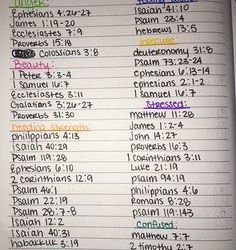 Anger:
Ephesians 4:26-27
James 1:19-20
Ecclesiastes 7:9
Proverbs 15:18
Colossians 3:8
Beauty:
1 Peter 3:3-4
1 Samuel 16:7
Ecclesiastes 3:11
Galatians 3:26-27
Proverbs 31:30
Needing Strength:
philippians 4:13
Isaiah 40:29
Psalm 119:28
Ephesians 6:10
2 Corinthians 12:9
Psalm 46:1
Psalm 22:19
Psalm 28:7-8
Isaiah 12:2
Isaiah 40:31
habakkuk 3:19
Isaiah 41:10
Psalm 23:4
hebrews 13:5
deuteronomy 31:8
Psalm 73:23-24
ephesians 6:13-14
ephesians 2:1-2
1 Samuel 16:7
Stressed:
matthew 11:28
James 1:2-4
John 14:27
proverbs 16:3
1 Corinthians 3:11
Luke 21:19
psalm 94:19
philippians 4:6
Romans 8:28
psalm 119:143
Confused:
matthew 7:7
2 timothy 2:7